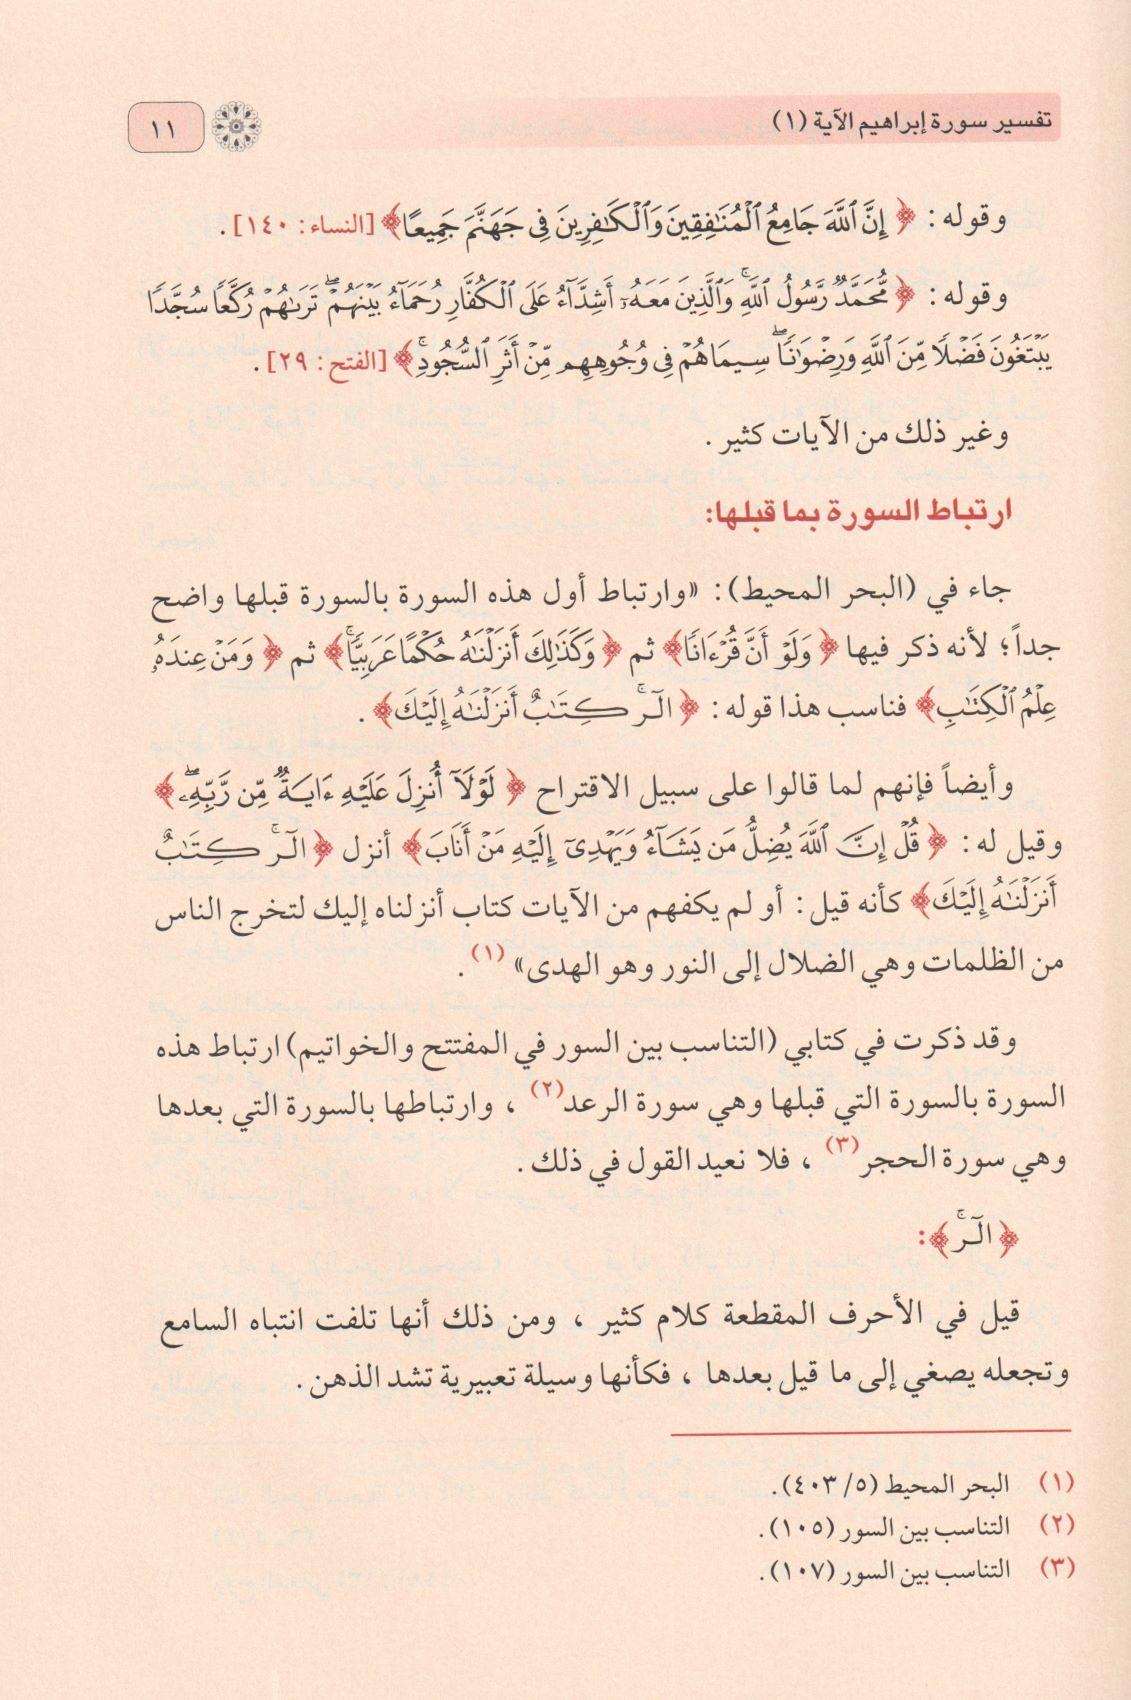 تفسير سورة إبراهيم الآية (١)
١١
وقوله: ﴿إِنَّ ٱللَّهَ جَامِعُ ٱلْمُنَٰفِقِينَ وَٱلْكَٰفِرِينَ فِى جَهَنَّمَ جَمِيعًا﴾ [النساء: ١٤٠].
وقوله: ﴿مُّحَمَّدٌ رَّسُولُ ٱللَّهِ ۚ وَٱلَّذِينَ مَعَهُۥٓ أَشِدَّآءُ عَلَى ٱلْكُفَّارِ رُحَمَآءُ بَيْنَهُمْ ۖ تَرَىٰهُمْ رُكَّعًا سُجَّدًا
يَبْتَغُونَ فَضْلًا مِّنَ ٱللَّهِ وَرِضْوَٰنًا ۖ سِيمَاهُمْ فِى وُجُوهِهِم مِّنْ أَثَرِ ٱلسُّجُودِ ۚ﴾ [الفتح: ٢٩].
وغير ذلك من الآيات كثير.
ارتباط السورة بما قبلها:
جاء في (البحر المحيط): «وارتباط أول هذه السورة بالسورة قبلها واضح
جداً؛ لأنه ذكر فيها ﴿وَلَوْ أَنَّ قُرْءَانًا﴾ ثم ﴿وَكَذَٰلِكَ أَنزَلْنَٰهُ حُكْمًا عَرَبِيًّا ۚ﴾ ثم ﴿وَمَنْ عِندَهُۥ
عِلْمُ ٱلْكِتَٰبِ﴾ فناسب هذا قوله: ﴿الٓر ۚ كِتَٰبٌ أَنزَلْنَٰهُ إِلَيْكَ﴾.
وأيضاً فإنهم لما قالوا على سبيل الاقتراح ﴿لَوْلَآ أُنزِلَ عَلَيْهِ ءَايَةٌ مِّن رَّبِّهِۦ ۖ﴾
وقيل له: ﴿قُلْ إِنَّ ٱللَّهَ يُضِلُّ مَن يَشَآءُ وَيَهْدِىٓ إِلَيْهِ مَنْ أَنَابَ﴾ أنزل ﴿الٓر ۚ كِتَٰبٌ
أَنزَلْنَٰهُ إِلَيْكَ﴾ كأنه قيل: أو لم يكفهم من الآيات كتاب أنزلناه إليك لتخرج الناس
من الظلمات وهي الضلال إلى النور وهو الهدى» (١).
وقد ذكرت في كتابي (التناسب بين السور في المفتتح والخواتيم) ارتباط هذه
السورة بالسورة التي قبلها وهي سورة الرعد(٢)، وارتباطها بالسورة التي بعدها
وهي سورة الحجر(٣)، فلا نعيد القول في ذلك.
﴿الٓر ۚ﴾:
قيل في الأحرف المقطعة كلام كثير، ومن ذلك أنها تلفت انتباه السامع
وتجعله يصغي إلى ما قيل بعدها، فكأنها وسيلة تعبيرية تشد الذهن.
(١) البحر المحيط (٥/ ٤٠٣).
(٢) التناسب بين السور (١٠٥).
(٣) التناسب بين السور (١٠٧).